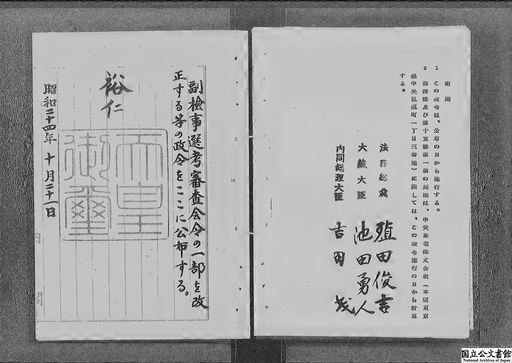 附則
1 この政令は、公布の日から施行する。
2 第十五條第一項の期間は、中央 株式会社(本店東京
都中央区 町一丁目三番地)に関しては、この政令施行の日から計算
する。
法務総裁 殖田俊吉
大藏大臣 池田勇人
内閣総理大臣 吉田茂
副檢事選考審査会令の一部を改
正する等の政令をここに公布する。
裕仁
天皇
御璽
昭和二十四年 十月
国立公文書館
National Archives of Japan